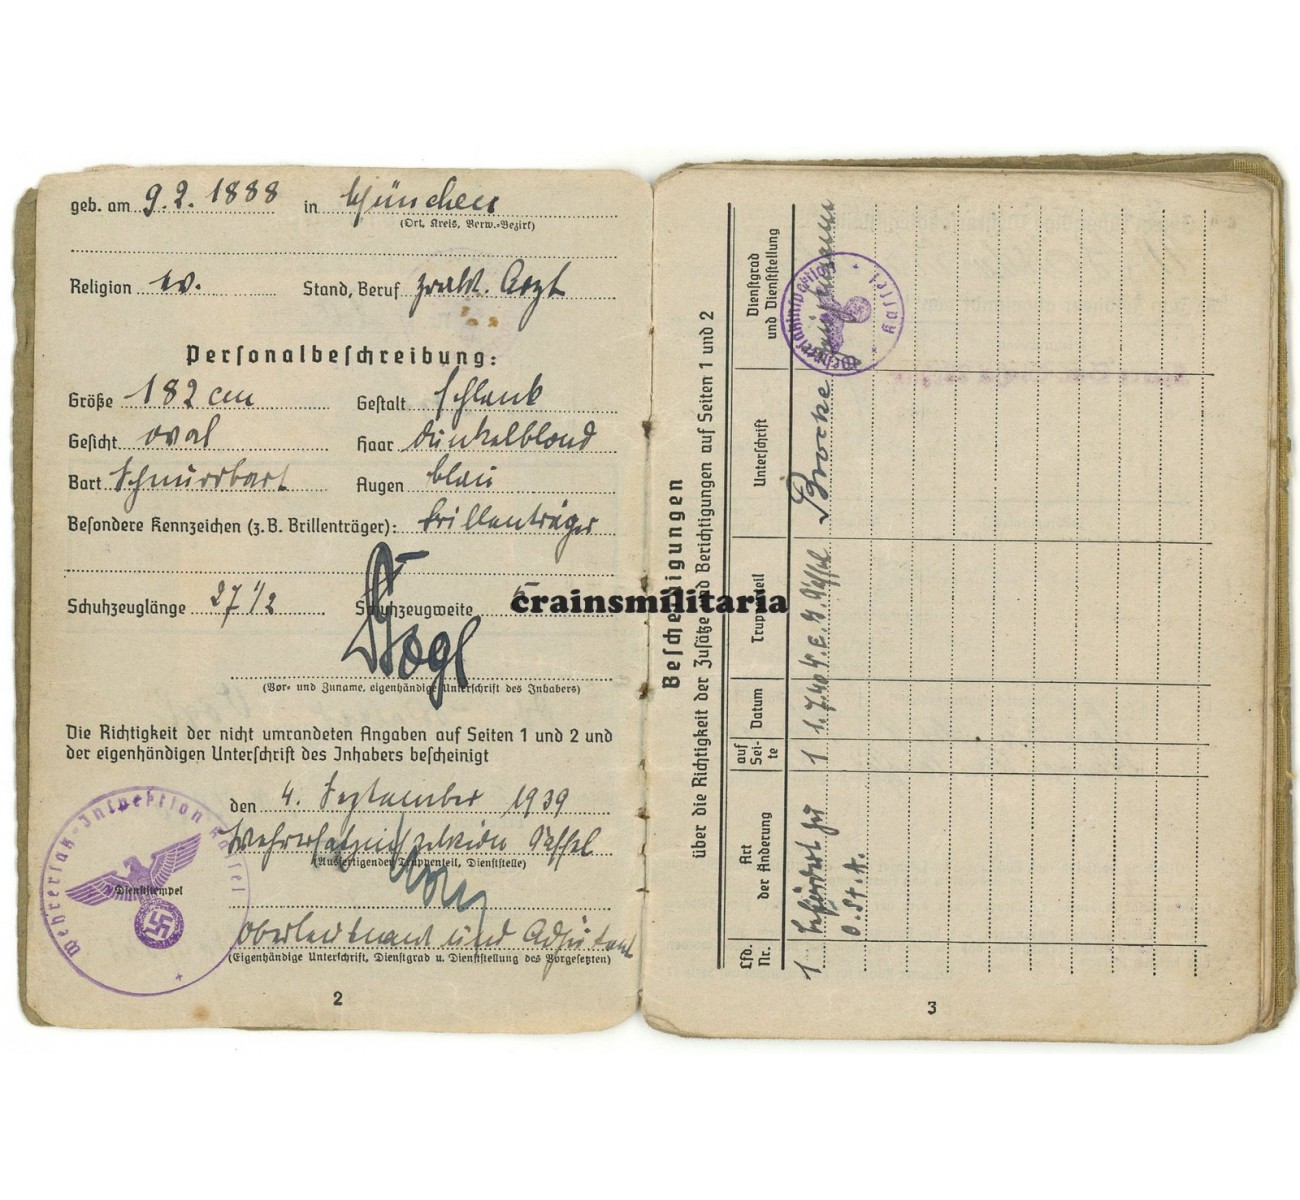 geb. am 9.2.1888 in München
(Ort, Kreis, Verw.-Bezirk)
Religion ev. Stand, Beruf prakt. Arzt
Personalbeschreibung:
Größe 182 cm Gestalt schlank
Gesicht oval Haar dunkelblond
Bart Schnurrbart Augen blau
Besondere Kennzeichen (z.B. Brillenträger): Brillenträger
Schuhzeuglänge 27 1/2 Schuhzeugweite
(Vor- und Zuname, eigenhändige Unterschrift des Inhabers)
Die Richtigkeit der nicht umrandeten Angaben auf Seiten 1 und 2 und
der eigenhändigen Unterschrift des Inhabers bescheinigt
den 4. September 1939
Wehrersatzinspektion Kassel
(Ausfertigender Truppenteil, Dienststelle)
Oberleutnant und Adjutant
(Eigenhändige Unterschrift, Dienstgrad u. Dienststellung des Vorgesetzten)
Wehrersatz-Inspektion Kassel
Dienststempel
2
crainsmilitaria
Bescheinigungen
über die Richtigkeit der Zusätze und Berichtigungen auf Seiten 1 und 2
Lfd. Nr.
Art der Änderung
auf Sei-te
Datum
Truppenteil
Unterschrift
Dienstgrad und Dienststellung
1 befördert zu 1 1.7.40 Kassel Brocke
O.St.A.
Wehrersatzinspektion Kassel
3